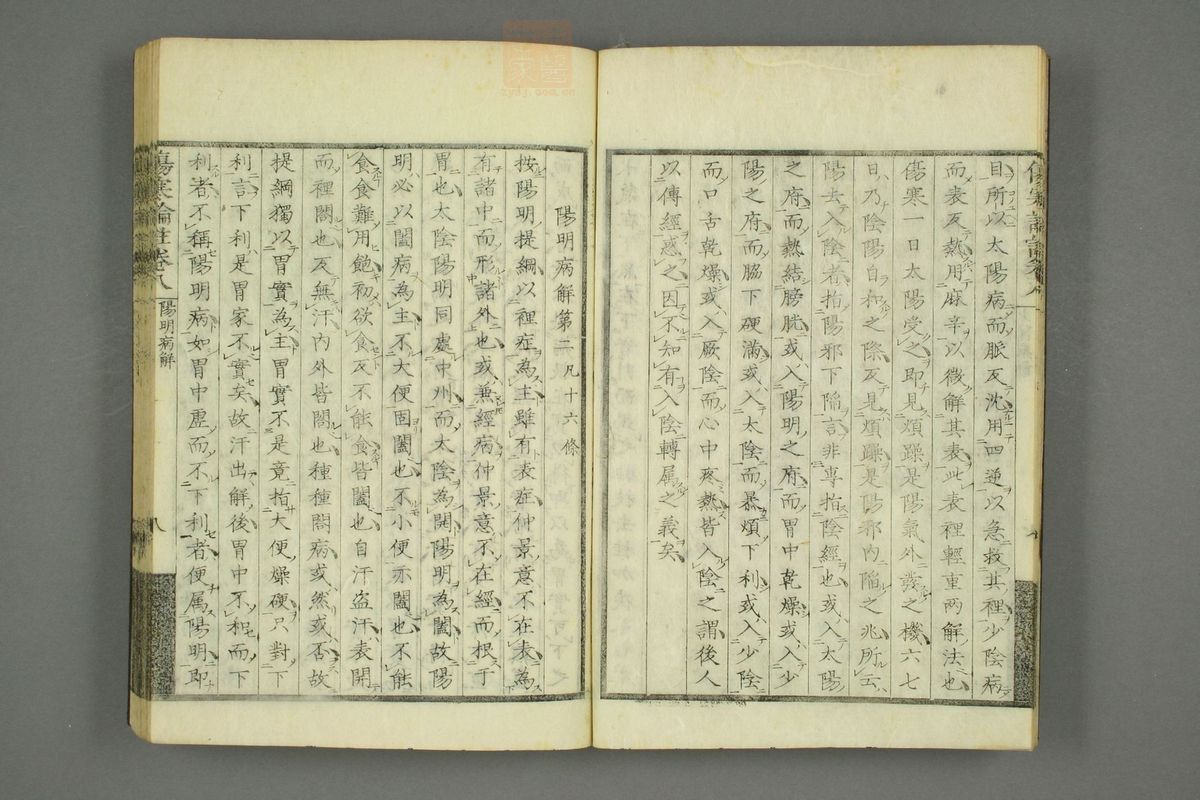 目所以太陽病而脈反沈用四逆以急救其裡少陰病
而表反熱用麻辛以微解其表此表裡輕重兩解法也
傷寒一日太陽受之即見煩躁是陽氣外發之機六七
日乃陰陽自和之際反見煩躁是陽邪內陷之兆所云
陽去入陰者指陽邪下陷言非專指陰經也或入太陽
之府而熱結膀胱或入陽明之府而胃中乾燥或入少
陽之府而脇下硬滿或入太陰而暴煩下利或入少陰
而口舌乾燥或入厥陰而心中疼熱皆入陰之謂後人
以傳經惑之因不知有入陰轉属之義矣
陽明病解第二凡十六條
按陽明提綱以裡症為主雖有表症仲景意不在表為
有諸中而形諸外也或兼經病仲景意不在經而根于
胃也太陰陽明同處中州而太陰為開陽明為闔故陽
明必以闔病為主不大便固闔也不小便亦闔也不能
食食難用飽初欲食反不能食皆闔也自汗盜汗表開
而裡闔也反無汗內外皆闔也種種闔病或然或否故
提綱獨以胃實為主胃實不是竟指大便燥硬只對下
利言下利是胃家不實矣故汗出解後胃中不和而下
利者不稱陽明病如胃中虛而不下利者便属陽明即
傷寒論註卷八
陽明病解
八